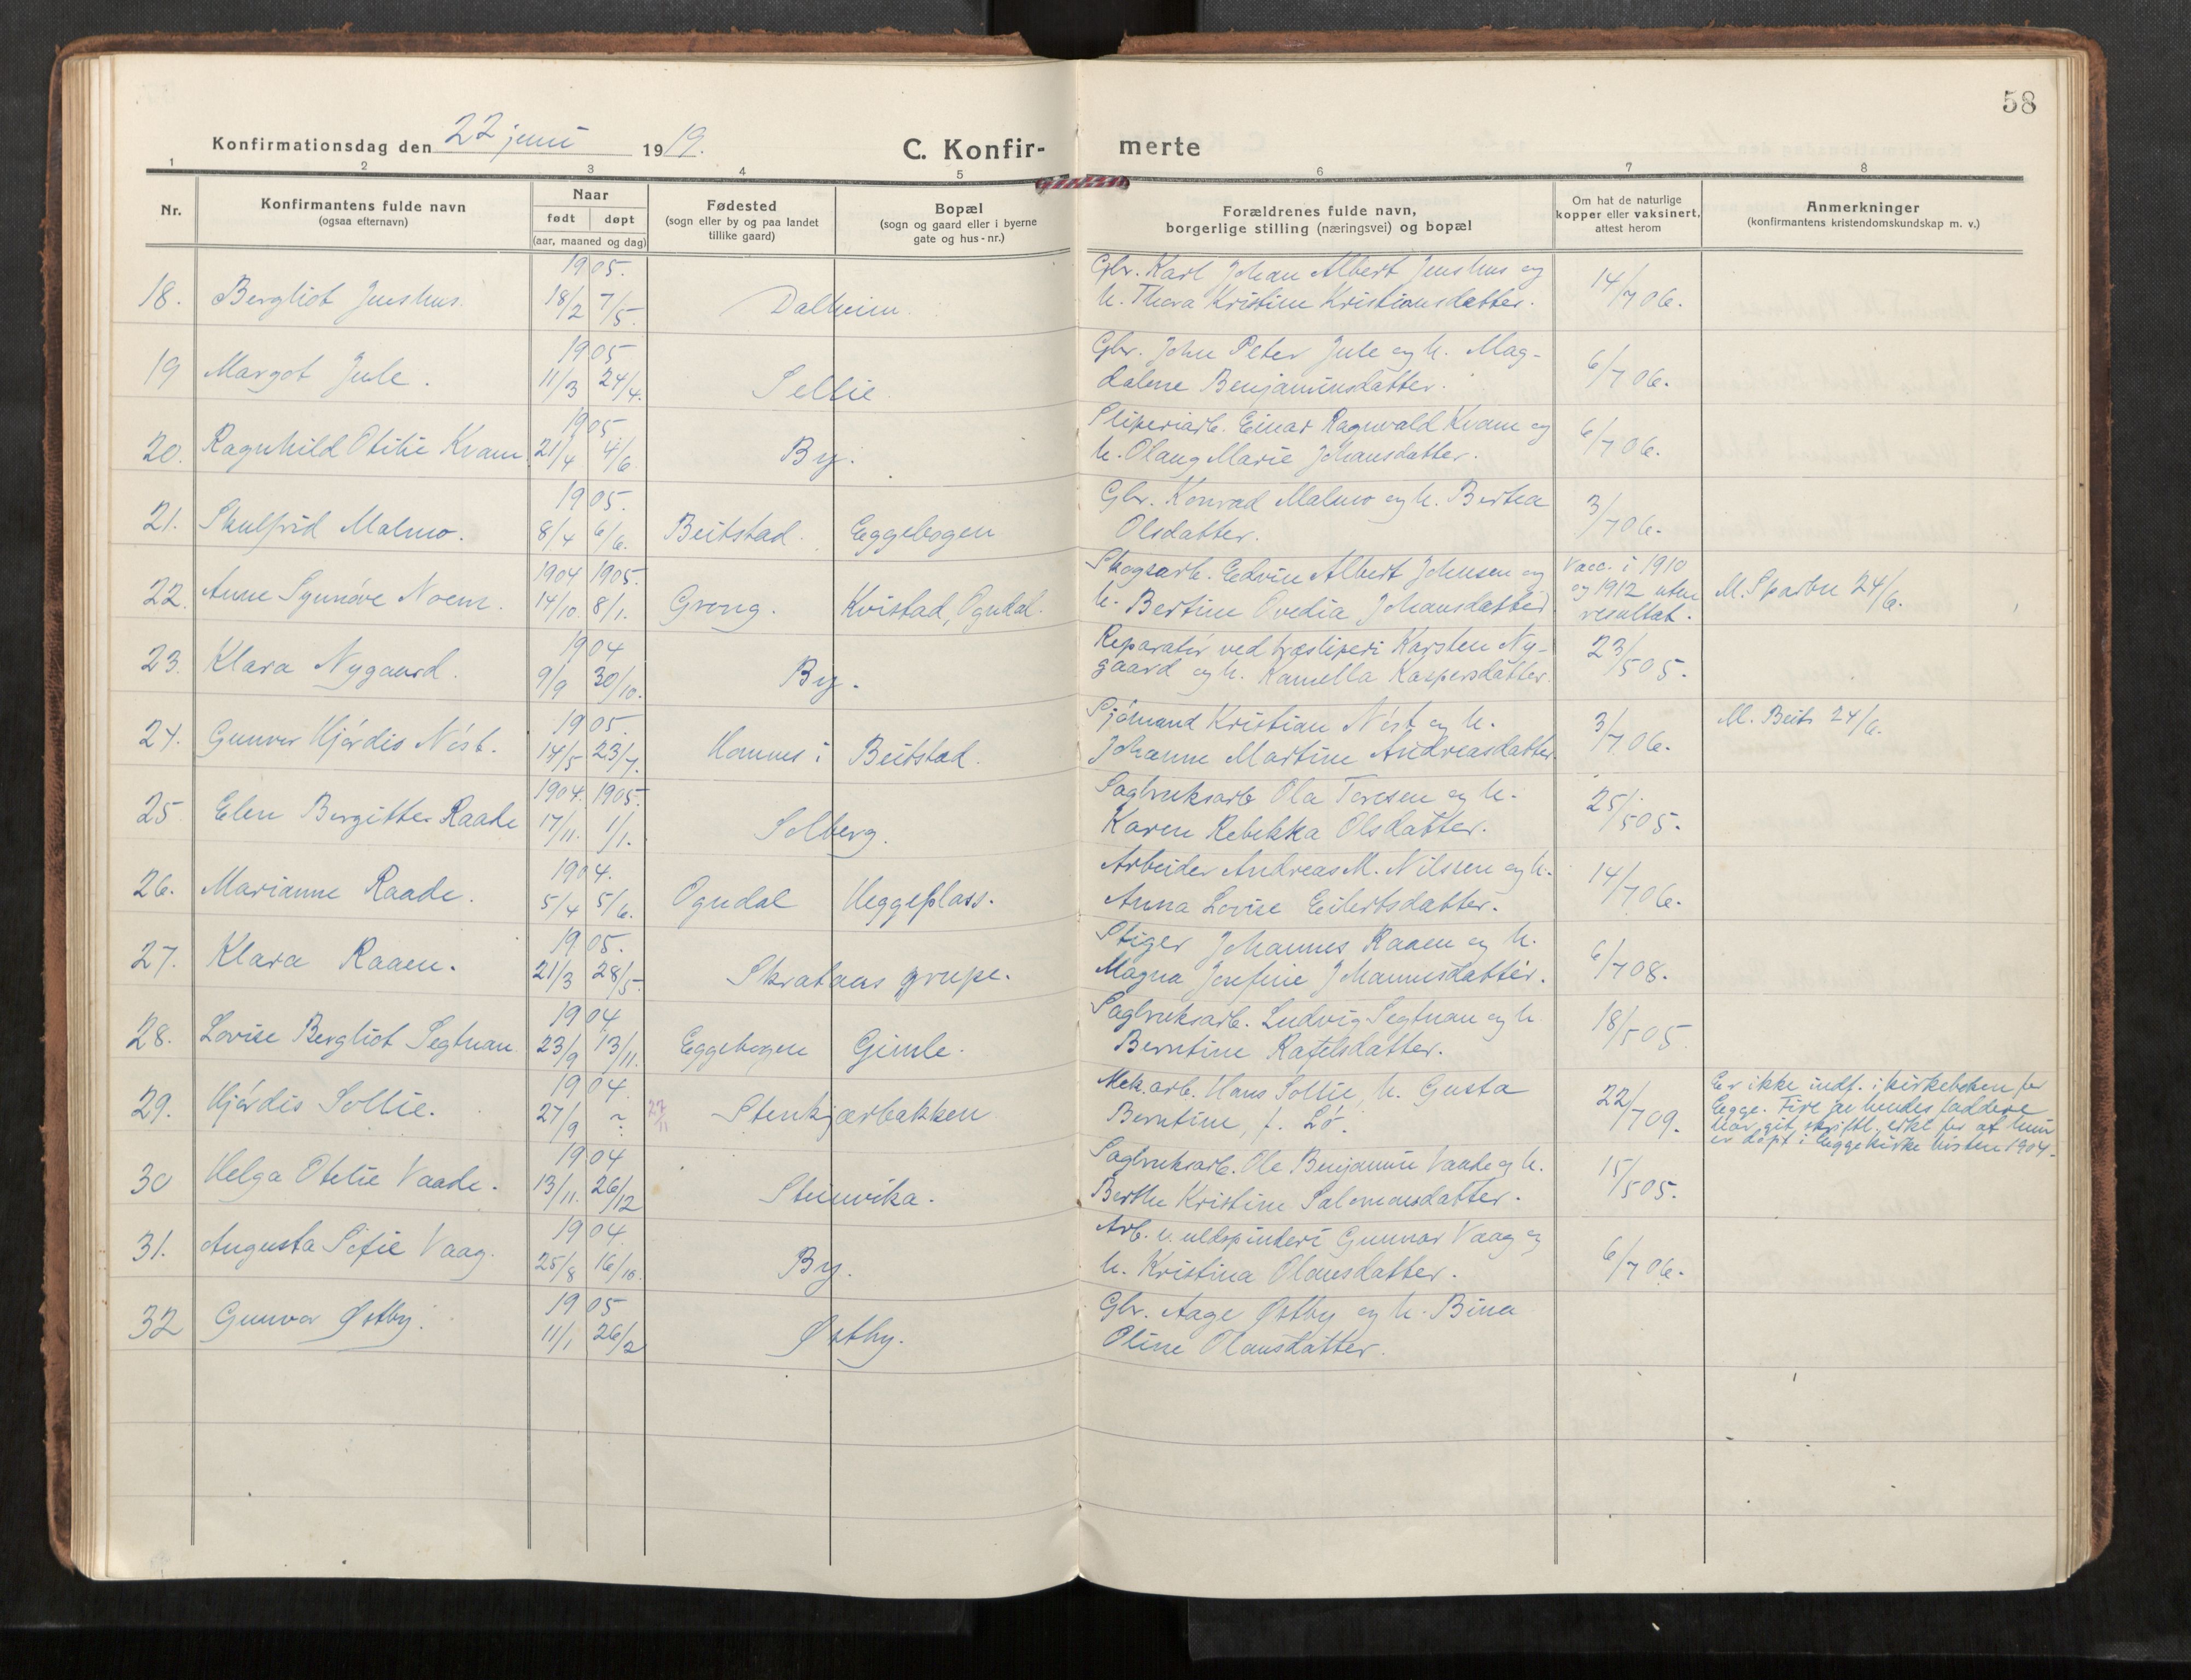 58
Konfirmationsdag den 22 juni 1919.
C. Konfir- merte
1 2 3 4 5 6 7 8
Nr.
Konfirmantens fulde navn
(ogsaa efternavn)
Naar
født døpt
(aar, maaned og dag)
Fødested
(sogn eller by og paa landet
tillike gaard)
Bopæl
(sogn og gaard eller i byerne
gate og hus-nr.)
Forældrenes fulde navn,
borgerlige stilling (næringsvei) og bopæl
Om hat de naturlige
kopper eller vaksinert,
attest herom
Anmerkninger
(konfirmantens kristendomskundskap m. v.)
1905. Gbr. Karl Johan Albert Jenshus og
18. Bergliot Jenshus. 18/2 7/5. Dalheim. h. Thora Kristine Kristiansdatter. 14/7 06.
1905 Gbr. John Peter Jule og h. Mag-
19 Margot Jule. 11/3 24/4. Sellie dalene Benjaminsdatter. 6/7 06.
1905 Sliperiarb. Einar Ragnvald Kvam og
20. Ragnhild Otilie Kvam 21/4 4/6 By. h. Olaug Marie Johansdatter. 6/7 06.
1905. Gbr. Konrad Malmo og h. Bertea
21. Skulfrid Malmo. 8/4 6/6. Beitstad. Eggebogen Olsdatter. 3/7 06.
1904 1905. Skogsarb. Edvin Albert Johnsen og Vacc. i 1910
22. Anne Synnöve Noem. 14/10. 8/1. Grong. Kvistad, Ogndal. h. Bertine Ovedia Johansdatter og 1912 uten M. Sparbu 24/6.
resultat.
1904 Reparatör ved træsliperi Karsten Ny-
23. Klara Nygaard. 9/9 30/10. By. gaard og h. Kamella Kaspersdatter. 23/5 05.
1905. Sjömand Kristian Nöst og h.
24. Gunvor Hjördis Nöst. 14/5 23/7. Hammes i Beitstad. Johanne Martine Andreasdatter. 3/7 06. M. Beits 24/6.
1904. 1905. Sagbruksarb Ola Toresen og h.
25. Elen Bergitte Raade 17/11. 1/1. Solberg. Karen Rebekka Olsdatter. 25/5 05.
1904. Arbeider Andreas M. Nilsen og h.
26. Marianne Raade. 5/4 5/6. Ogndal Heggeplass. Anna Lovise Eilertsdatter. 14/7 06.
1905. Stiger Johannes Raaen og h.
27. Klara Raaen. 21/3 28/5. Skrataas grupe. Magna Josefine Johannesdatter. 6/7 08.
1904 Sagbruksarb. Ludvig Segtnan og h
28. Lovise Bergliot Segtnan 23/9 13/11. Eggebogen Gimle. Berntine Rafelsdatter. 18/5 05.
1904. Mek.arb. Hans Sollie, h. Gusta
29. Hjördis Sollie. 27/9 ~ 22/11 Stenkjærbakken Berntine, f. Lö. 22/7 09. Er ikke indf. i kirkeboken for
Egge. Fire av hendes faddere
har git skriftl. erkl. for at hun
er döpt i Egge kirke hösten 1904.
1904 Sagbruksarb. Ole Benjamin Vaade og h.
30 Helga Otelie Vaade. 13/11. 26/12 Steinvika. Berthe Kristine Salomonsdatter. 15/5 05.
1904. Arb. v. uldspinderi Gunnar Vaag og
31. Augusta Sofie Vaag. 25/8 16/10. By. h. Kristina Olausdatter. 6/7 06.
1905 Gbr. Aage Østby og h. Bina
32 Gunvor Østby. 11/1 26/2 Østby. Oline Olausdatter.